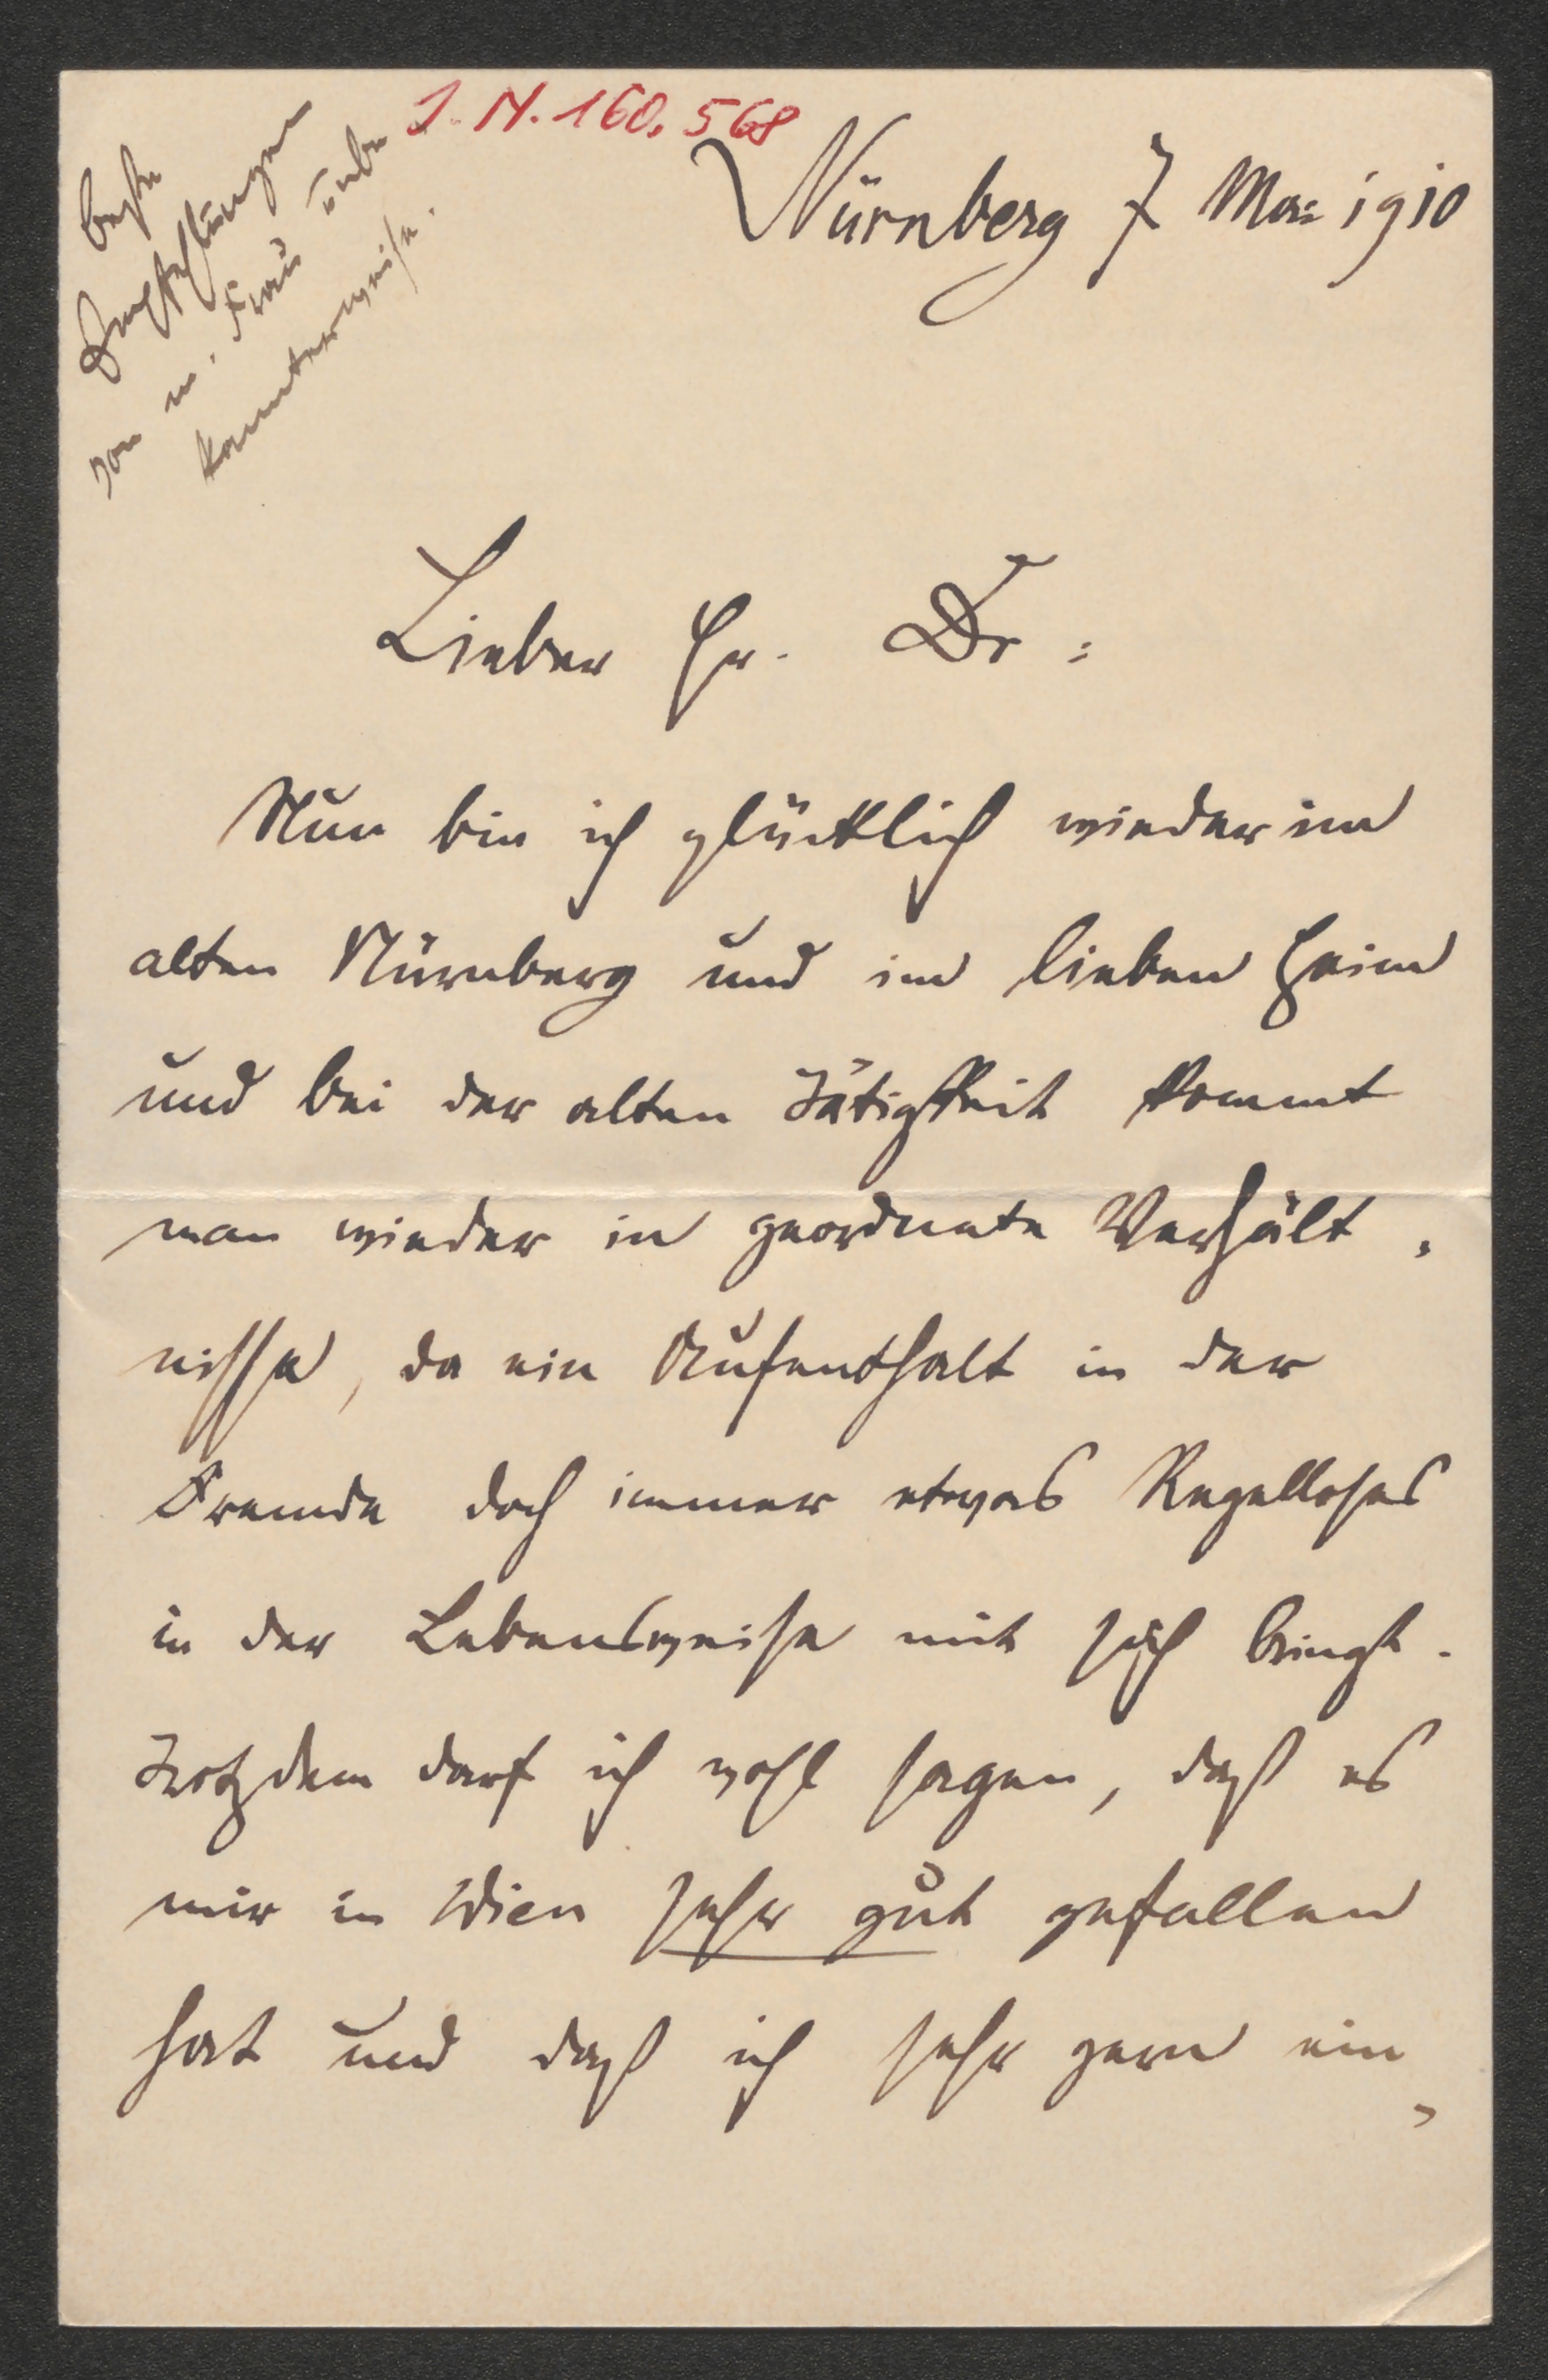 J. N. 160.568
Nürnberg 7 Mai 1910
beste
Empfehlungen
von m. Frau unbe
kannterweise.
Lieber Hr. Dr:
Nun bin ich glücklich wieder im
alten Nürnberg und im lieben Heim
und bei der alten Tätigkeit kommt
man wieder in geordnete Verhält-
nisse, da ein Aufenthalt in der
Fremde doch immer etwas Regelloses
in der Lebensweise mit sich bringt.
Trotzdem darf ich wohl sagen, daß es
mir in Wien sehr gut gefallen
hat und daß ich sehr gern ein